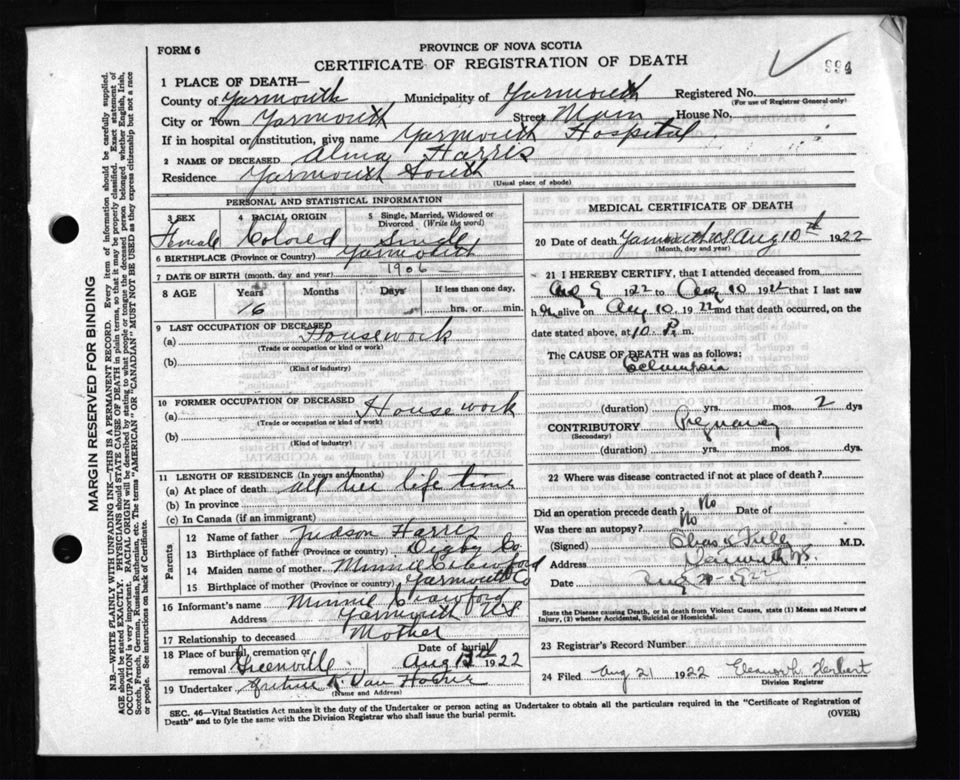 FORM 6
PROVINCE OF NOVA SCOTIA
CERTIFICATE OF REGISTRATION OF DEATH
994
1 PLACE OF DEATH—
County of Yarmouth Municipality of Yarmouth Registered No.
(For use of Registrar General only)
City or Town Yarmouth Street Main House No.
If in hospital or institution, give name Yarmouth Hospital
2 NAME OF DECEASED Alma Harris
Residence Yarmouth South
(Usual place of abode)
PERSONAL AND STATISTICAL INFORMATION
3 SEX Female
4 RACIAL ORIGIN Colored
5 Single, Married, Widowed or Divorced (Write the word) Single
6 BIRTHPLACE (Province or Country) Yarmouth
7 DATE OF BIRTH (month, day and year) 1906 —
8 AGE Years Months Days If less than one day,
16 hrs. or min.
9 LAST OCCUPATION OF DECEASED
(a) Housework
(Trade or occupation or kind of work)
(b)
(Kind of industry)
10 FORMER OCCUPATION OF DECEASED
(a) House work
(b)
(Kind of industry)
11 LENGTH OF RESIDENCE (In years and months)
(a) At place of death all her life time
(b) In province
(c) In Canada (if an immigrant)
Parents
12 Name of father Judson Harris
13 Birthplace of father (Province or country) Digby Co
14 Maiden name of mother Minnie Crawford
15 Birthplace of mother (Province or country) Yarmouth Co
16 Informant's name Minnie Crawford
Address Yarmouth N.S.
17 Relationship to deceased Mother
18 Place of burial, cremation or removal Greenville Date of burial Aug 13th 1922
19 Undertaker Van Horne
(Name and Address)
MEDICAL CERTIFICATE OF DEATH
20 Date of death Yarmouth NS Aug 10th 1922
(Month, day and year)
21 I HEREBY CERTIFY, that I attended deceased from
Aug 9 1922 to Aug 10 1922 that I last saw
her alive on Aug 10, 1922 and that death occurred, on the
date stated above, at 10. P. m.
The CAUSE OF DEATH was as follows:
Eclampsia
(duration) yrs. mos. 2 dys
CONTRIBUTORY Pregnancy
(Secondary)
(duration) yrs. mos. dys
22 Where was disease contracted if not at place of death?
Did an operation precede death? No Date of
Was there an autopsy? No
(Signed) M.D.
Address Yarmouth NS.
Date Aug 22
State the Disease causing Death, or in death from Violent Causes, state (1) Means and Nature of Injury, (2) whether Accidental, Suicidal or Homicidal.
23 Registrar's Record Number
24 Filed Aug 21 1922 Herbert
Division Registrar
SEC. 46—Vital Statistics Act makes it the duty of the Undertaker or person acting as Undertaker to obtain all the particulars required in the "Certificate of Registration of
Death" and to fyle the same with the Division Registrar who shall issue the burial permit.
(OVER)
MARGIN RESERVED FOR BINDING
N.B.—WRITE PLAINLY WITH UNFADING INK—THIS IS A PERMANENT RECORD. Every item of information should be carefully supplied.
AGE should be stated EXACTLY. PHYSICIANS should STATE CAUSE OF DEATH in plain terms, so that it may be properly classified. Exact statement of
OCCUPATION is very important. RACIAL ORIGIN will be described by stating to what people or tongue the deceased person belonged whether English, Irish,
Scotch, French, German, Russian, Ruthenian, etc. The terms "AMERICAN" or "CANADIAN" MUST NOT BE USED as they express citizenship but not a race
or people. See instructions on back of Certificate.